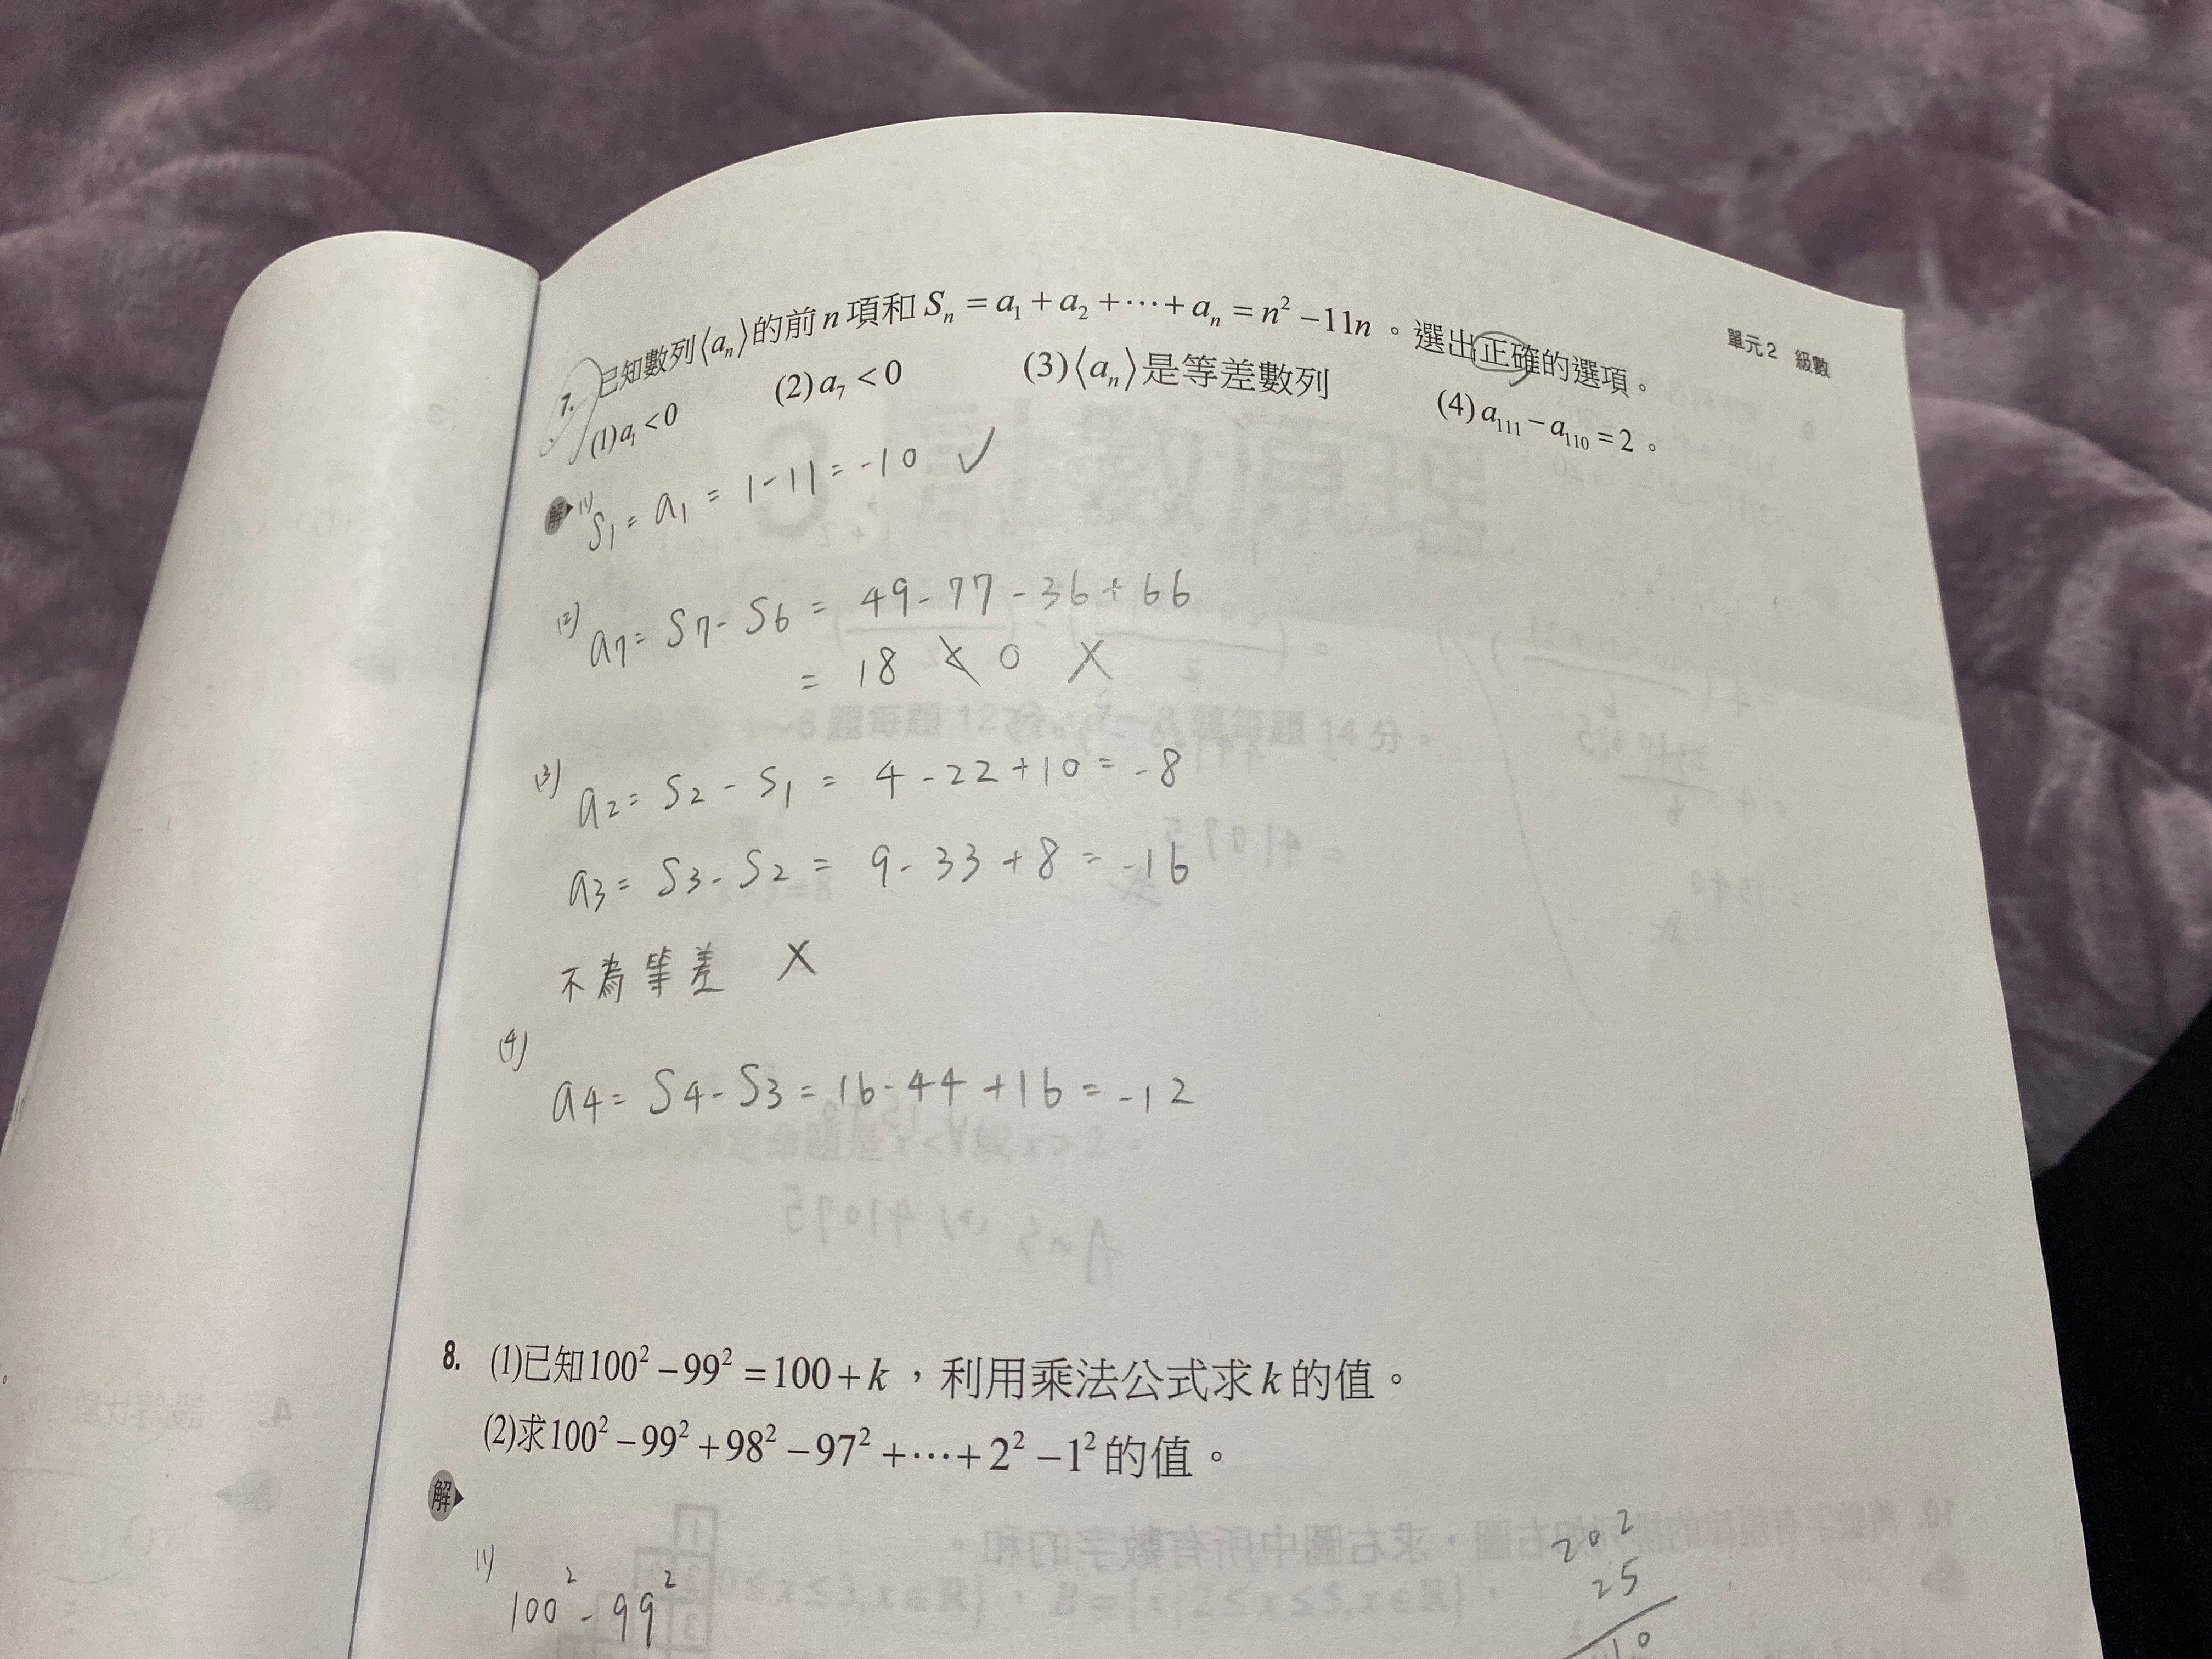 單元2 級數
7. 已知數列⟨aₙ⟩的前n項和Sₙ = a₁ + a₂ + ⋯ + aₙ = n² − 11n。選出正確的選項。
(1) a₁ < 0 (2) a₇ < 0 (3)⟨aₙ⟩是等差數列 (4) a₁₁₁ − a₁₁₀ = 2。
解 (1) S₁ = a₁ = 1 - 11 = -10 ✓
(2) a₇ = S₇ - S₆ = 49 - 77 - 36 + 66
= 18 ≮ 0 ✗
(3) a₂ = S₂ - S₁ = 4 - 22 + 10 = -8
a₃ = S₃ - S₂ = 9 - 33 + 8 = -16
不為等差 ✗
(4)
a₄ = S₄ - S₃ = 16 - 44 + 16 = -12
8. (1)已知100² − 99² = 100 + k,利用乘法公式求k的值。
(2)求100² − 99² + 98² − 97² + ⋯ + 2² − 1²的值。
解
(1)
100² - 99²
20²
25